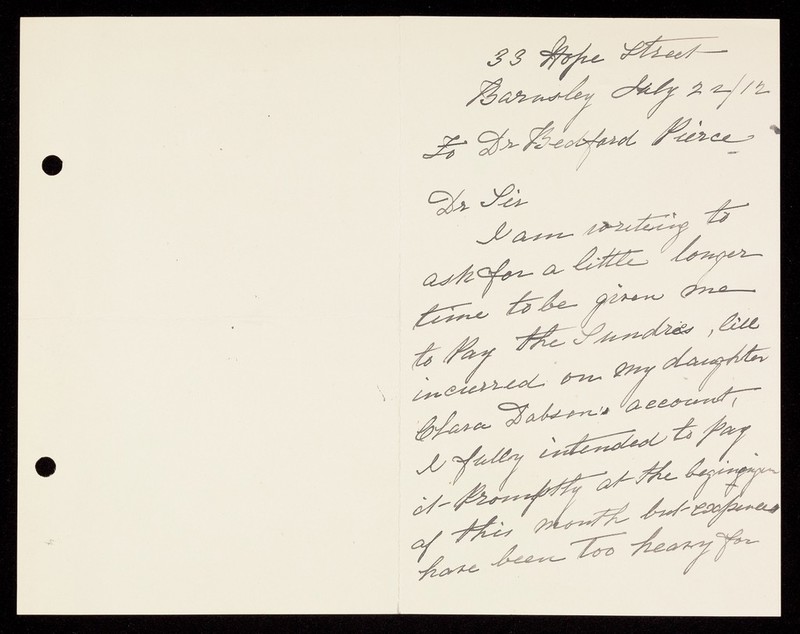 33 Hope Street
Barnsley July 22/12
To Dr Bedford Pierce
Dr Sir
I am writing to
ask for a little longer
time to be given me
to Pay the Sundries, bill
incurred on my daughter
Clara Dobson's account,
I fully intended to pay
it Promptly at the
of this month but expences
have been too heavy for